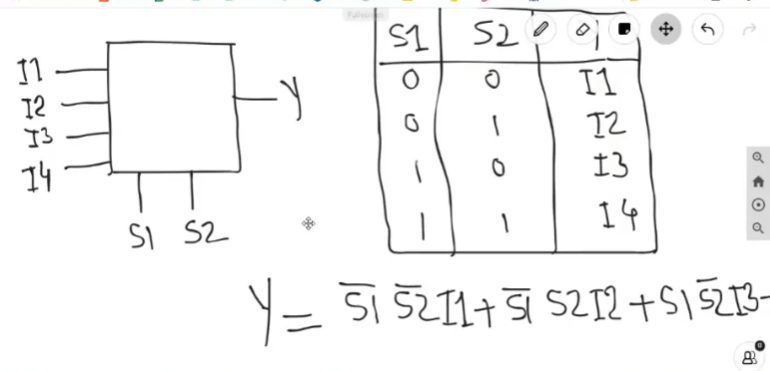 I1
I2
I3
I4
Y
S1 S2
S1 S2
0 0 I1
0 1 I2
1 0 I3
1 1 I4
Y = S̅1̅ S̅2I1 + S̅1̅ S2I2 + S1 S̅2I3-